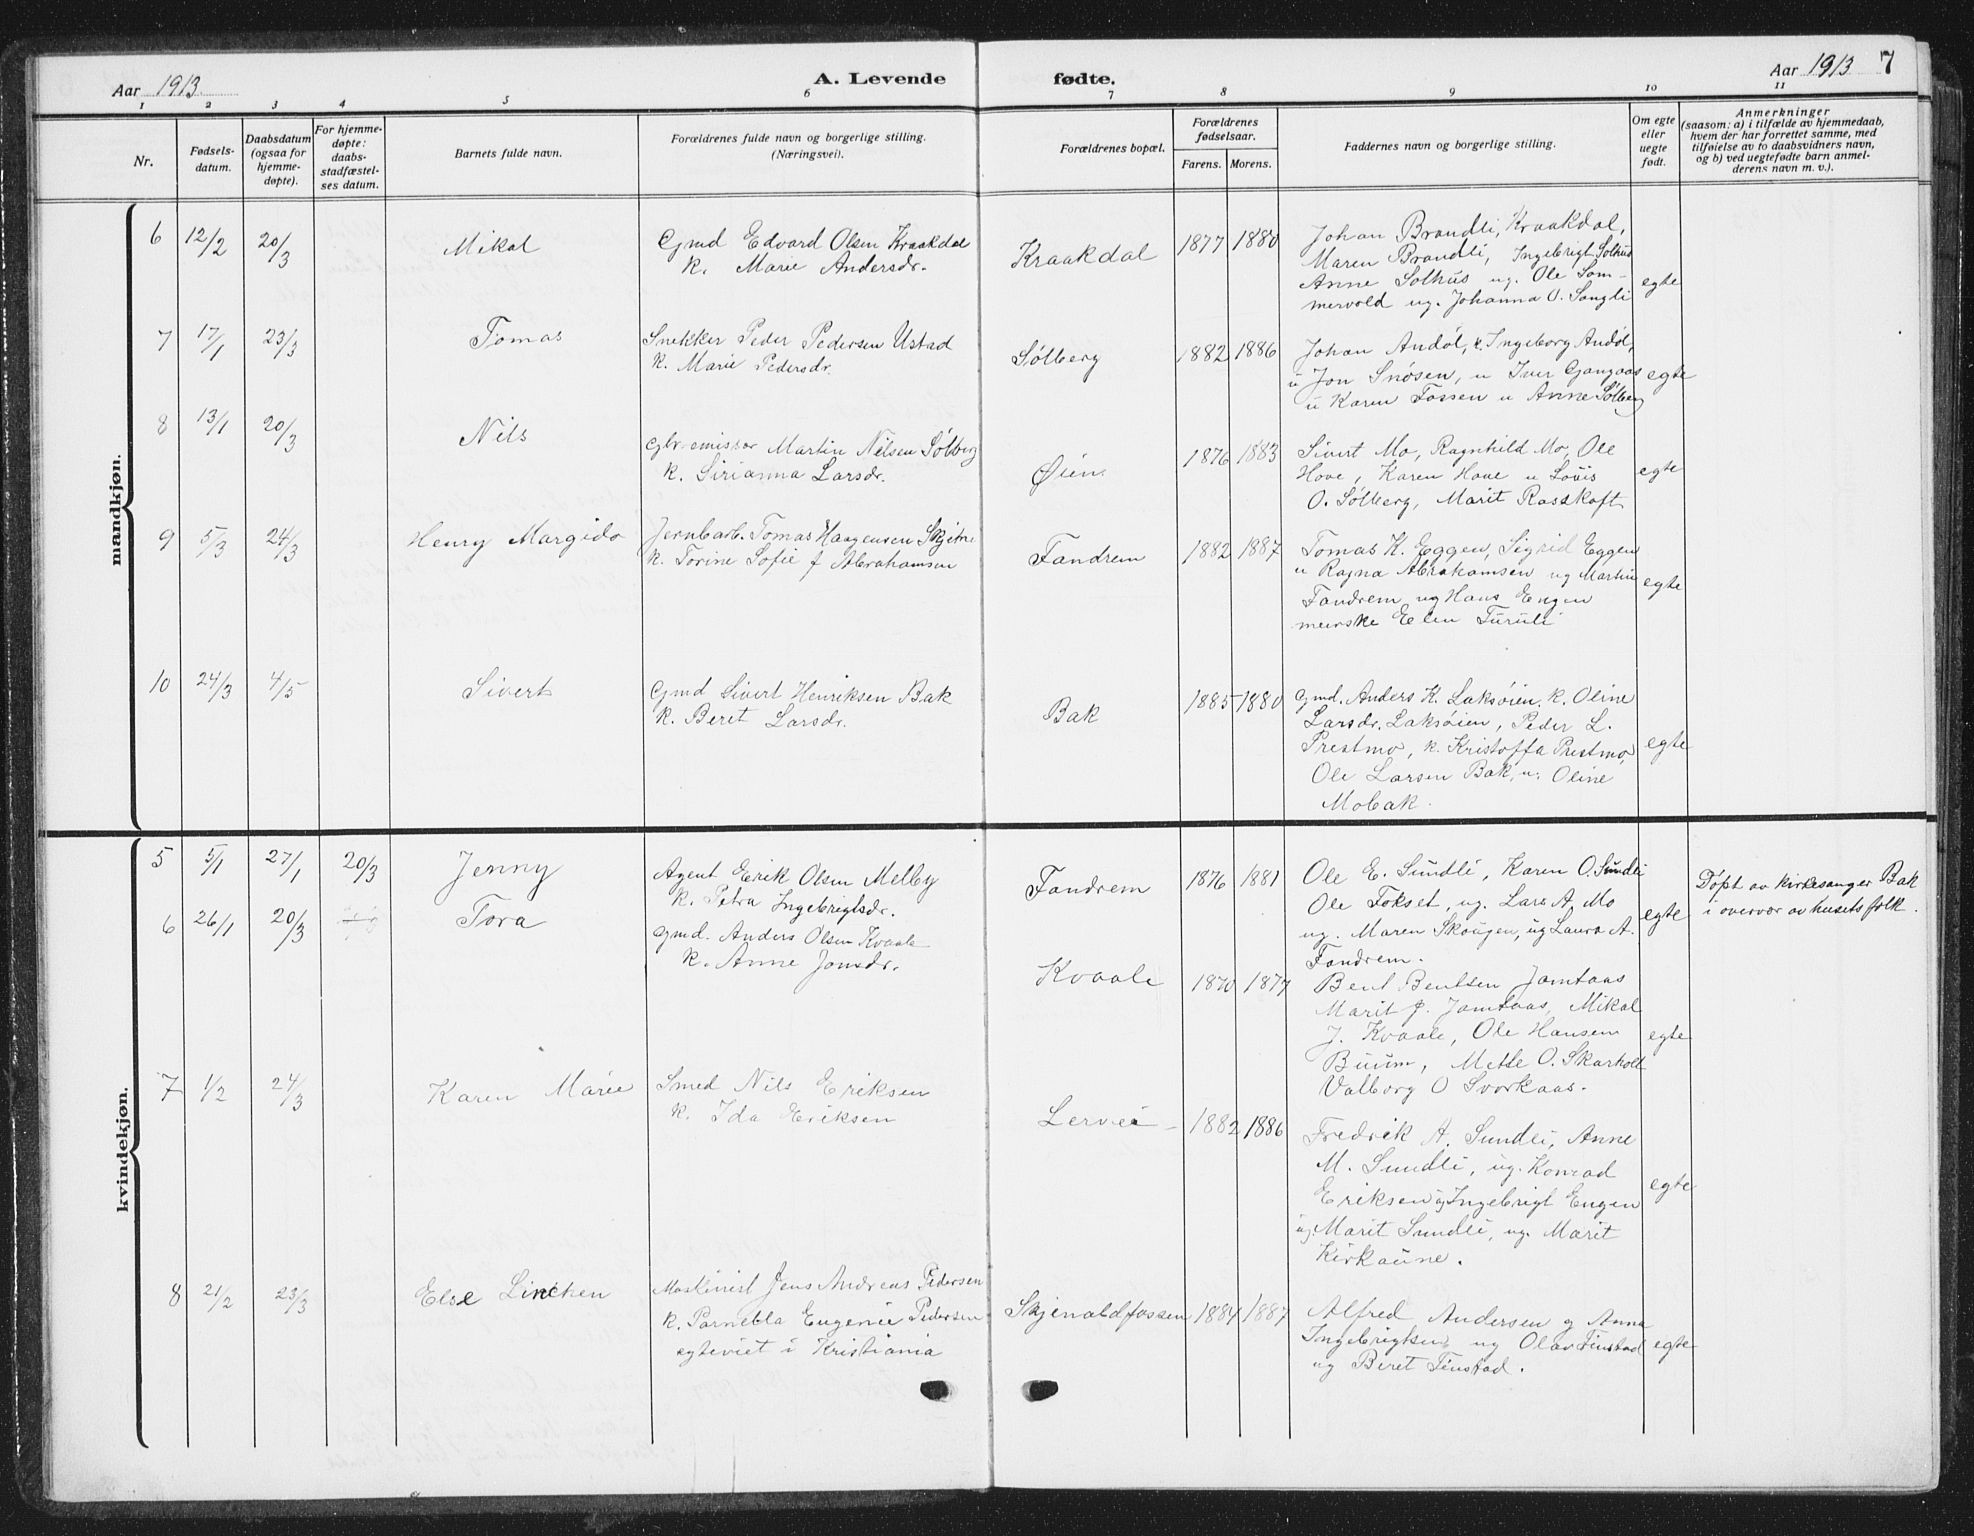 Aar 1913
A. Levende fødte.
Aar 1913 7
1 2 3 4 5 6 7 8 9 10 11
Nr.
Fødsels-
datum.
Daabsdatum
(ogsaa for
hjemme-
døpte).
For hjemme-
døpte:
daabs-
stadfæstel-
ses datum.
Barnets fulde navn.
Forældrenes fulde navn og borgerlige stilling.
(Næringsvei).
Forældrenes bopæl.
Forældrenes
fødselsaar.
Farens. Morens.
Faddernes navn og borgerlige stilling.
Om egte
eller
uegte
født.
Anmerkninger
(saasom: a) i tilfælde av hjemmedaab,
hvem der har forrettet samme, med
tilføielse av to daabsvidners navn,
og b) ved uegtefødte barn anmel-
derens navn m. v.).
mandkjøn.
6 12/2 20/3 Mikal
Gmd Edvard Olsen Kraakdal
k. Marie Andersdr.
Kraakdal 1877 1880
Johan Brandli, Kraakdal,
Maren Brandli, Ingebrigt Solhus
Anne Solhus ug. Ole Som-
mervold ug. Johanna O. Songli
egte
7 17/1 23/3 Tomas
Snekker Peder Pedersen Ustad
k. Marie Pedersdr.
Sølberg 1882 1886
Johan Andøl, k. Ingeborg Andøl,
u Jon Snøsen, u Iver Gangaas
u Karen Fossen u Anne Sølberg
egte
8 13/1 20/3 Nils
Gbr. emissær Martin Nilsen Sølberg
k. Sirianna Larsdr.
Øien 1876 1883
Sivert Mo, Ragnhild Mo, Ole
Hove, Karen Hove u Lovis
O. Sølberg, Marit Rasskaft
egte
9 5/3 24/3 Henry Margido
Jernbarb. Tomas Haagensen Skjetne
k. Torine Sofie f Abrahamsen
Fandrem 1882 1887
Tomas K. Eggen, Sigrid Eggen
u Ragna Abrahamsen ug Martin
Fandrem ug Hans Engen
meierske Elen Turuli
egte
10 24/3 4/5 Sivert
Gmd Sivert Henriksen Bak
k. Beret Larsdr.
Bak 1885 1880
Gmd. Anders K. Laksøien, k. Oline
Larsdr. Laksøien, Peder L.
Prestmo, k. Kristoffa Prestmo,
Ole Larsen Bak, u. Oline
Mobak.
egte
kvindekjøn.
5 5/1 27/1 20/3 Jenny
Agent Erik Olsen Melby
k. Petra Ingebrigtsdr.
Fandrem 1876 1881
Ole E. Sundli, Karen O. Sundli
Ole Tokset, ug. Lars A. Mo
ug. Maren Skougen, ug Laura A.
Fandrem.
egte
Døpt av kirkesanger Bak
i overvær av husets folk.
6 26/1 20/3 Tora
Gmd. Anders Olsen Kvaale
k. Anne Jonsdr.
Kvaale 1870 1877
Bent Bentsen Jamtaas
Marit J. Jamtaas, Mikal
J. Kvaale, Ole Hansen
Buum, Mette O. Skarholt
Valborg O Svorkaas.
egte
7 1/2 24/3 Karen Marie
Smed Nils Eriksen
k. Ida Eriksen
Lervei 1882 1886
Fredrik A. Sundli, Anne
M. Sundli, ug. Konrad
Eriksen og Ingebrigt Engen
ug. Marit Sundli, ug. Marit
Kirkaune.
egte
8 21/2 23/3 Else Linchen
Maskinist Jens Andreas Pedersen
k. Pernella Eugenie Pedersen
egteviet i Kristiania
Skjenaldfossen 1884 1887
Alfred Andersen og Anna
Ingebrigtsen ug Olav Finstad
ug Beret Finstad.
egte